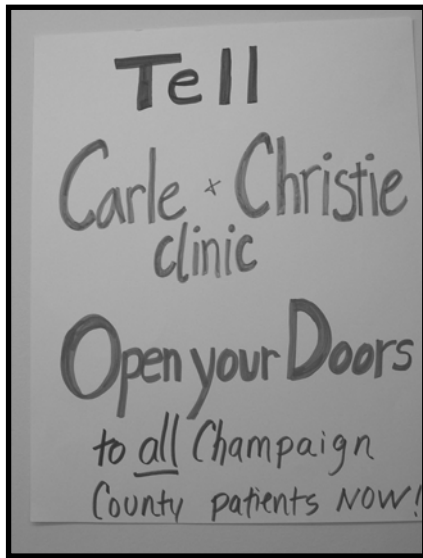 Tell
Carle + Christie
clinic
Open your Doors
to all Champaign
County patients NOW!